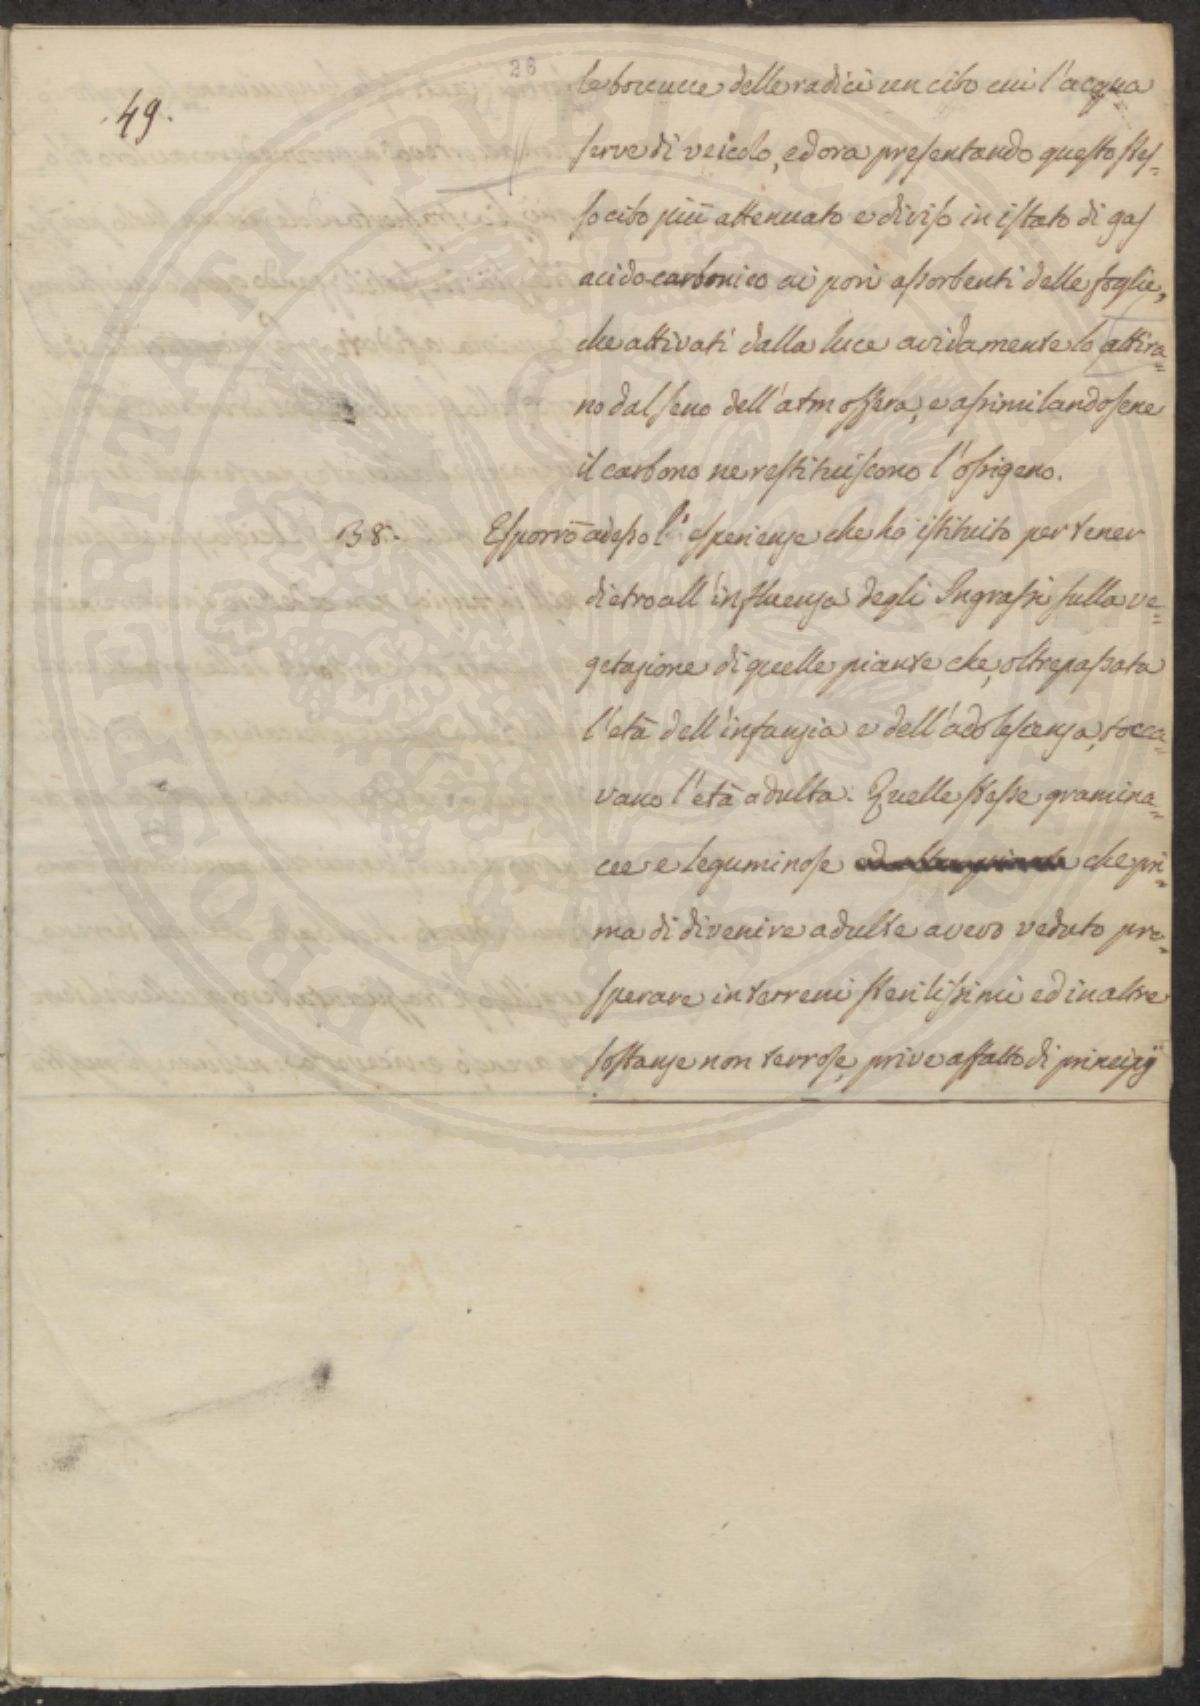 26
49.
le boccucce delle radici un cibo cui l'acqua
serve di veicolo, ed ora presentando questo stes=
so cibo più attenuato e diviso in istato di gas
acido carbonico ai pori assorbenti delle foglie,
che attivati dalla luce avidamente lo attira=
no dal seno dell'atmosfera, e assimilandosene
il carbono ne restituiscono l'ossigeno.
38. Esporrò adesso l' esperienze che ho istituito per tener
dietro all'influenza degli Ingrassi sulla ve=
getazione di quelle piante che, oltrepassata
l'età dell'infanzia e dell'adolescenza, tocca=
vano l'età adulta. Quelle stesse gramina=
cee e leguminose che pri=
ma di divenire adulte avevo veduto pro=
sperare in terreni sterilissimi ed in altre
sostanze non terrose, prive affatto di principj